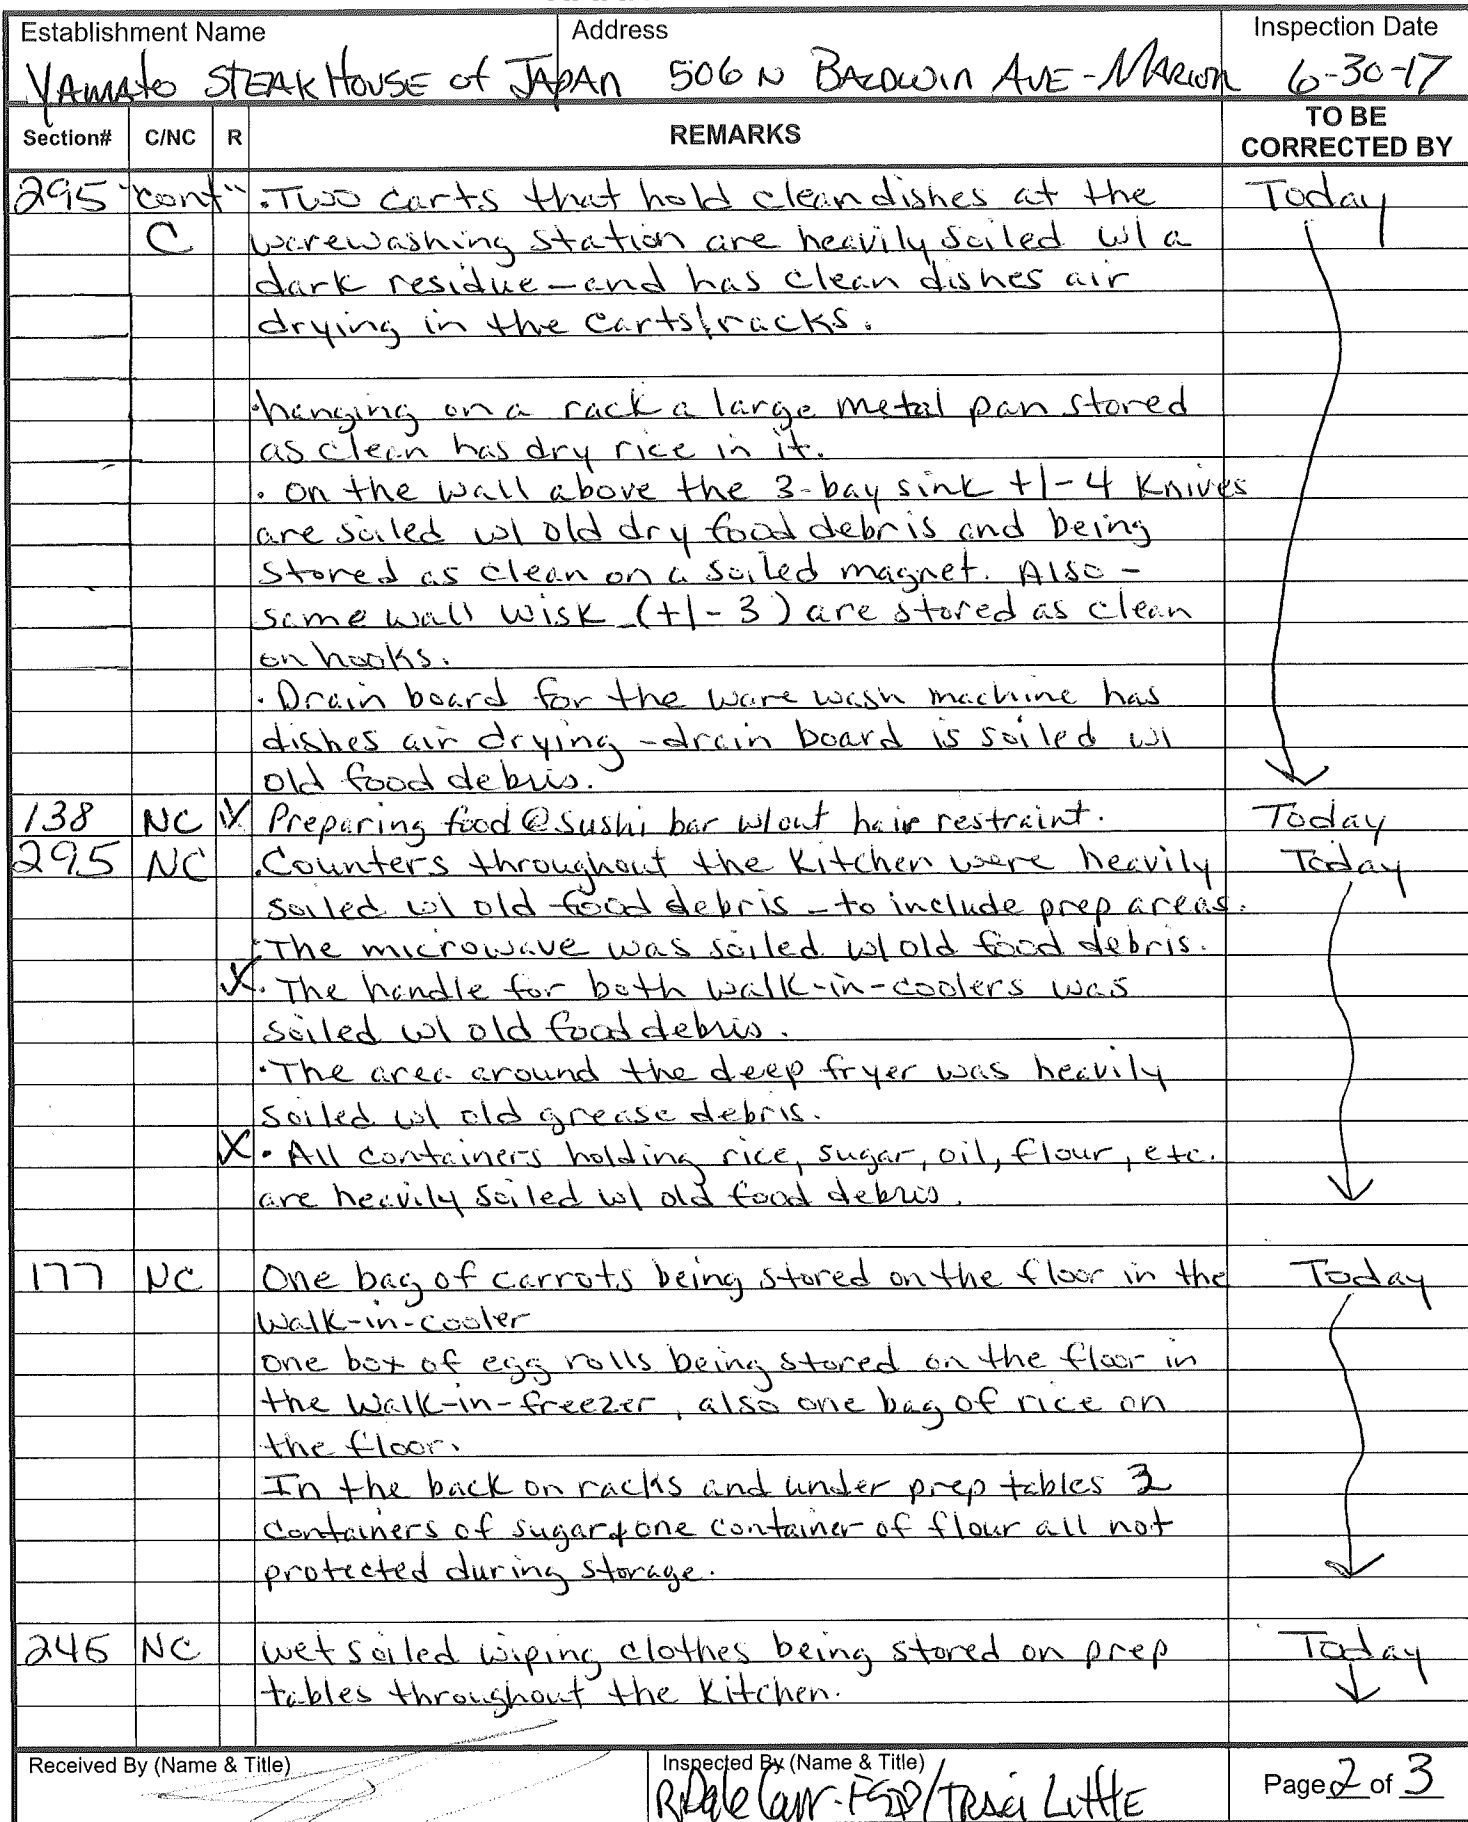 Establishment Name Address Inspection Date
YAMATO STEAK HOUSE of JAPAN 506 N BALDWIN AVE - MARION 6-30-17
Section# C/NC R REMARKS TO BE CORRECTED BY
295 "cont" . Two carts that hold clean dishes at the Today
C warewashing station are heavily soiled w/ a
dark residue - and has clean dishes air
drying in the carts/racks.
. hanging on a rack a large metal pan stored
as clean has dry rice in it.
. on the wall above the 3-bay sink +/- 4 Knives
are soiled w/ old dry food debris and being
stored as clean on a soiled magnet. Also -
same wall wisk (+/- 3) are stored as clean
on hooks.
. Drain board for the ware wash machine has
dishes air drying - drain board is soiled w/
old food debris.
138 NC X Preparing food @ sushi bar w/out hair restraint. Today
295 NC . Counters throughout the kitchen were heavily Today
soiled w/ old food debris - to include prep areas.
. The microwave was soiled w/ old food debris.
X . The handle for both walk-in-coolers was
soiled w/ old food debris.
. The area around the deep fryer was heavily
soiled w/ old grease debris.
X . All containers holding rice, sugar, oil, flour, etc.
are heavily soiled w/ old food debris.
177 NC One bag of carrots being stored on the floor in the Today
walk-in-cooler
one box of egg rolls being stored on the floor in
the walk-in-freezer, also one bag of rice on
the floor.
In the back on racks and under prep tables
containers of sugar & one container of flour all not
protected during storage.
NC wet soiled wiping clothes being stored on prep Today
tables throughout the kitchen.
Received By (Name & Title) Inspected By (Name & Title) Page 2 of 3
R Dale / Traci Little